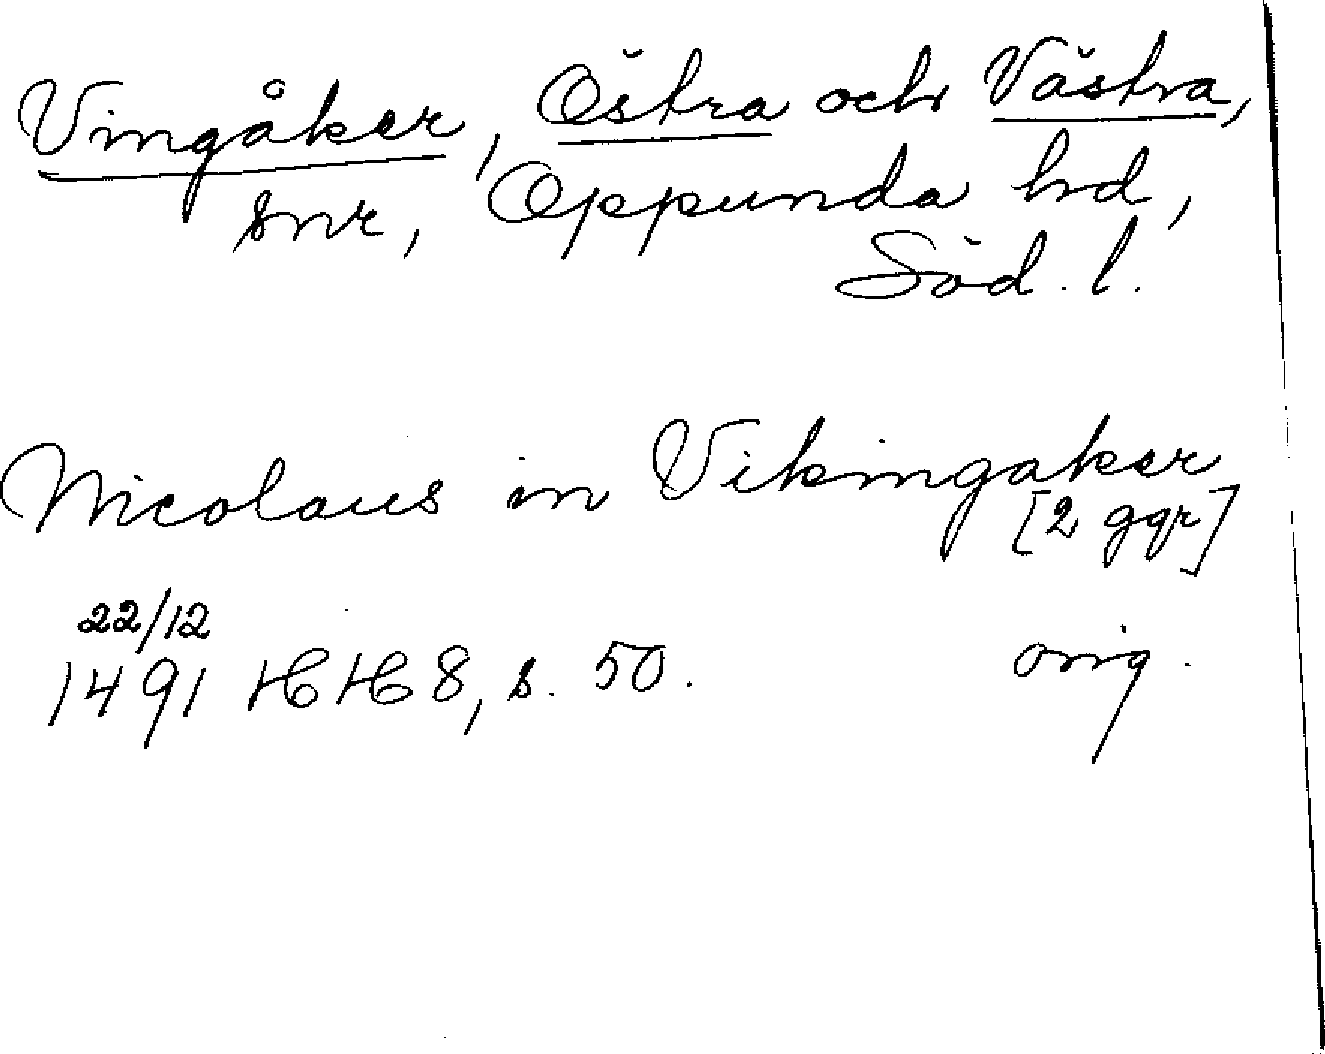 Vingåker, Östra och Västra,
snr, Oppunda hd,
Söd. l.
Nicolaus in Vikingaker
[2 ggr]
22/12
1491 HH 8, s. 50. orig.